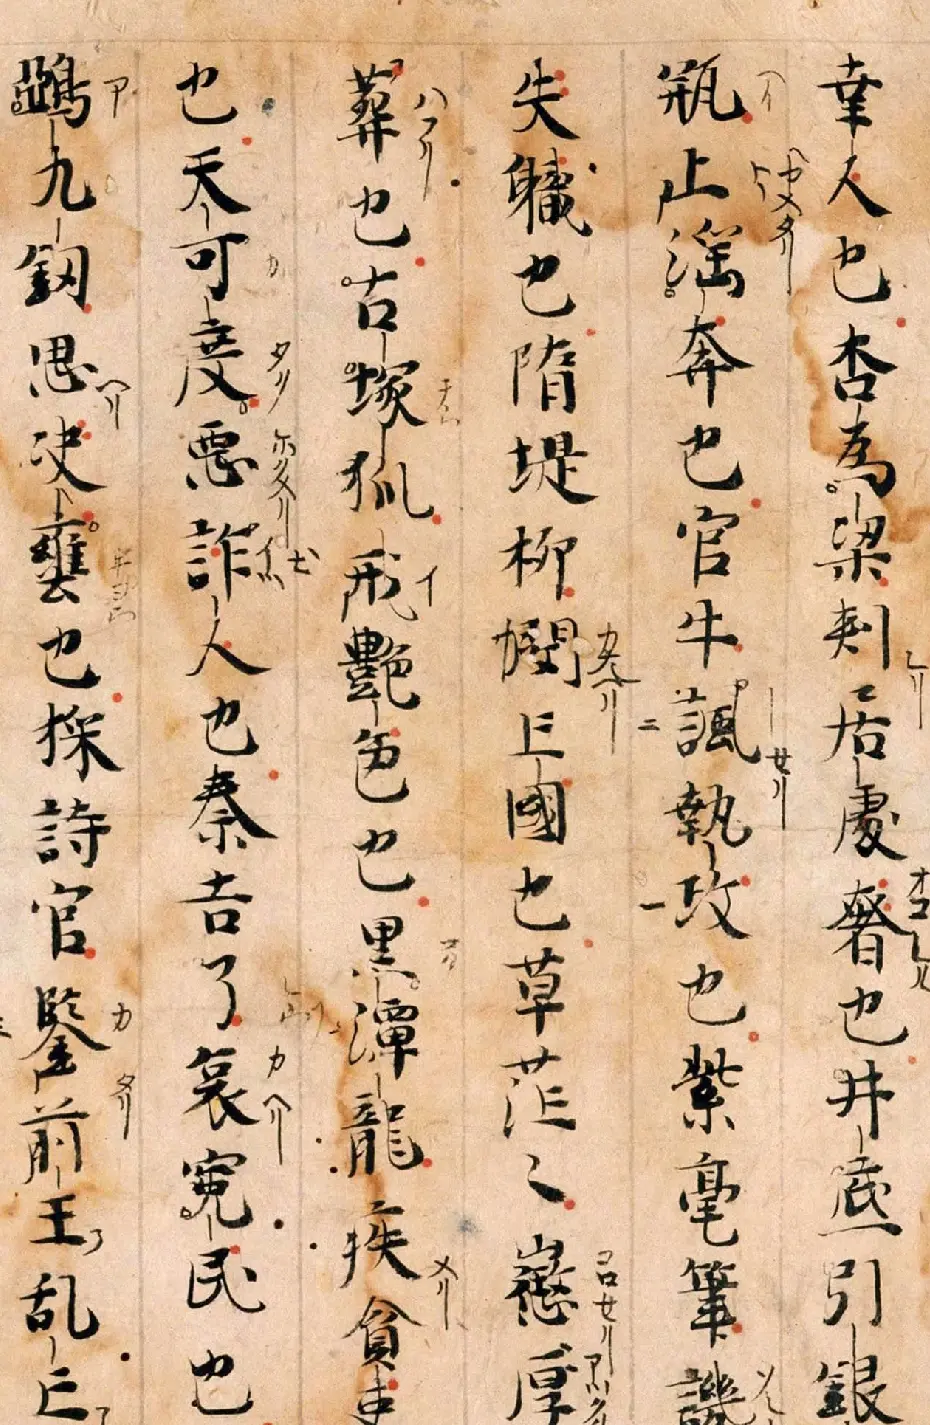 幸人也杏為梁刺居處奢也井底引銀
瓶止淫奔也官牛諷執政也紫毫筆譏
失職也隋堤柳憫亡國也草茫〻懲厚
葬也古塚狐戒艷色也黑潭龍疾貪吏
也天可度惡詐人也秦吉了哀冤民也
鵶九釼思决壅也採詩官鑒前王乱亡